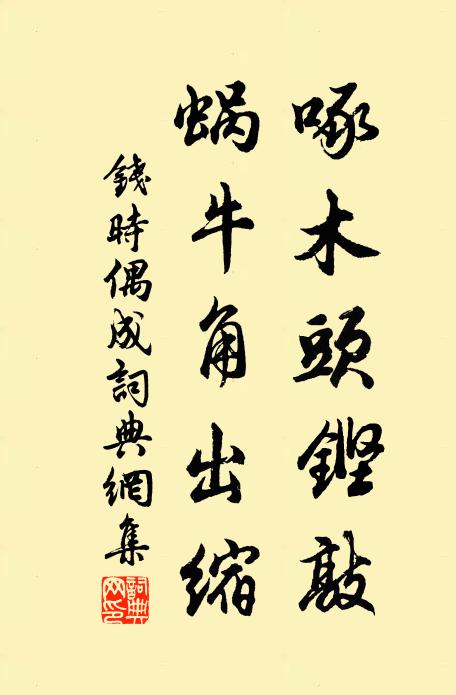 啄木頭鏗敲
蝸牛角出縮
錢時偶成詞典網集
詞典网印